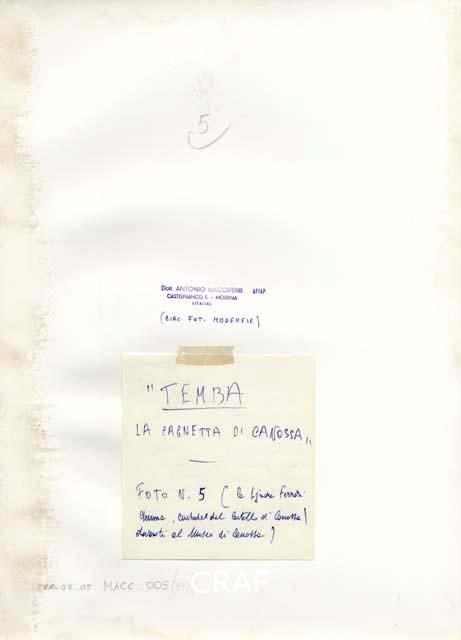 5
DOR. ANTONIO MACCAFERRI AFIAP
CASTELFRANCO E. - MODENA
(ITALIA)
(CIRC. FOT. MODENESE)
"TEMBA
LA CAGNETTA DI CANOSSA"
FOTO N. 5 (la Signora Ferrari
custode del Castello di Canossa)
davanti al Museo di Canossa)
07.05 MACC. 005
CRAF